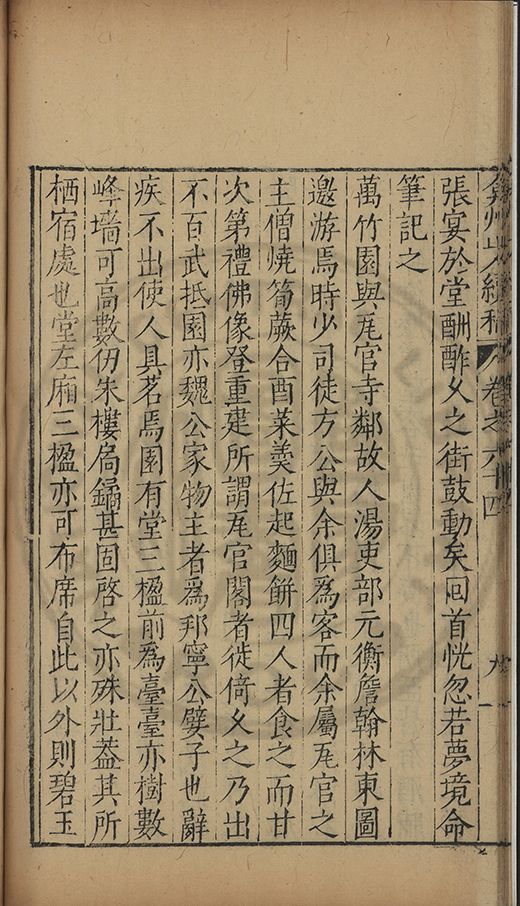 弇州山人續稿 卷之六十四 九
張宴於堂酬酢久之街鼓動矣回首恍忽若夢境命
筆記之
萬竹園與瓦官寺鄰故人湯吏部元衡詹翰林東圖
邀游焉時少司徒方公與余俱爲客而余屬瓦官之
主僧燒筍蕨合酉萊羹佐起麵餅四人者食之而甘
次第禮佛像登重建所謂瓦官閣者徙倚久之乃出
不百武抵園亦魏公家物主者爲邦寧公孽子也辭
疾不出使人具茗焉園有堂三楹前爲臺臺亦樹數
峰墻可高數仞朱樓扃鐍甚固啓之亦殊壯葢其所
栖宿處也堂左廂三楹亦可布席自此以外則碧玉